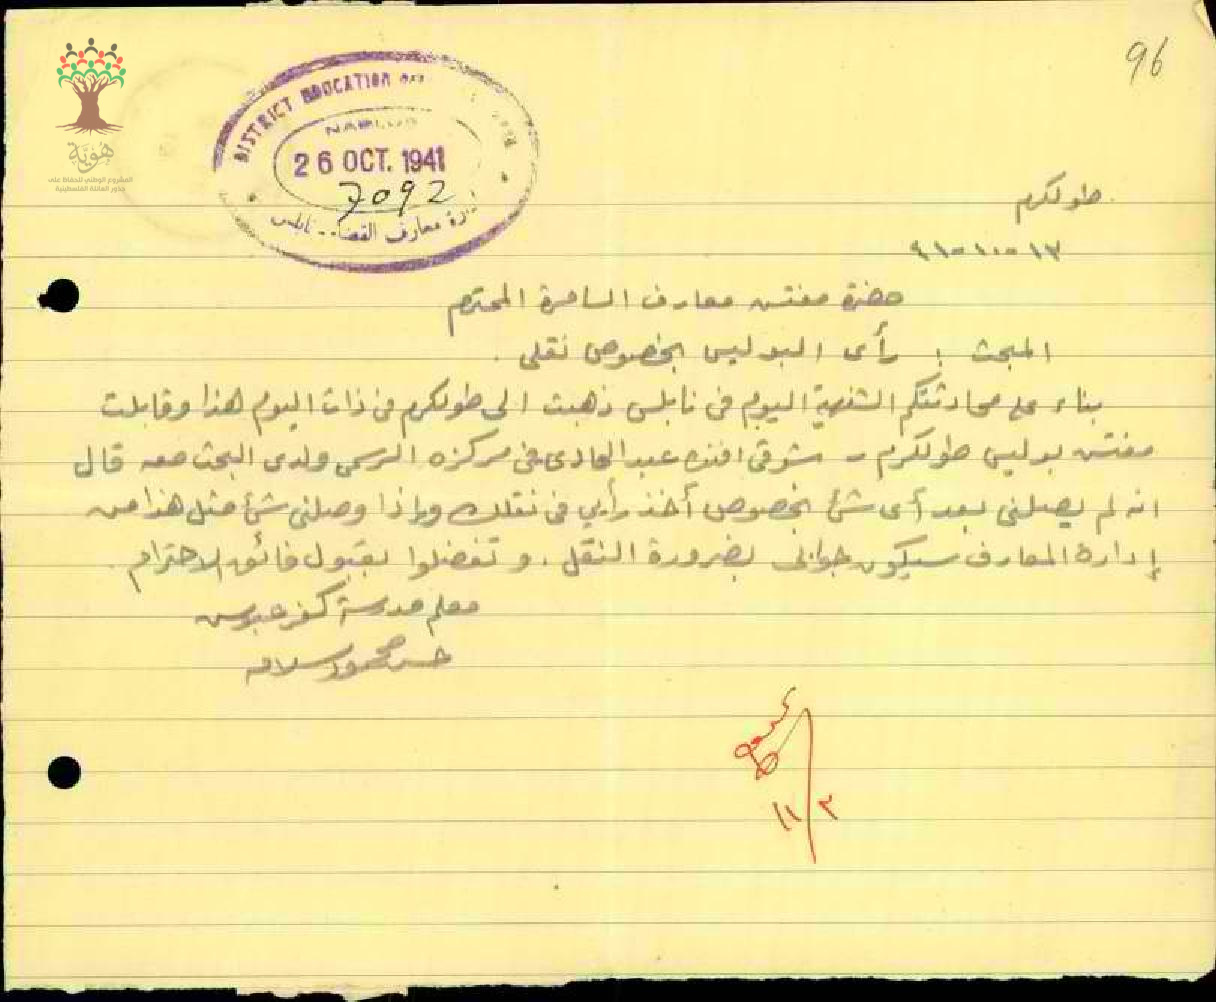 96
هوية
المشروع الوطني للحفاظ على
جذور العائلة الفلسطينية
DISTRICT EDUCATION
NABLUS
26 OCT. 1941
7092
معارف القضاء - نابلس
طولكرم
١٣-١٠-٤١
حضرة مفتش معارف السامرة المحترم
المبحث : رأى البوليس بخصوص نقلى .
بناء على محادثتكم الشفهية اليوم فى نابلس ذهبت الى طولكرم فى ذات اليوم هذا وقابلت
مفتش بوليس طولكرم - شوقى افندى عبد الهادى فى مركزه الرسمى ولدى البحث معه قال
انه لم يصلنى بعد أى شئ بخصوص أخذ رأيي فى نقلك وإذا وصلنى شئ مثل هذا من
إدارة المعارف سيكون جوابى بضرورة النقل . و تفضلوا بقبول فائق الاحترام .
معلم مدرسة كفر عبوش
حسن محمود سلامه
١١/٢